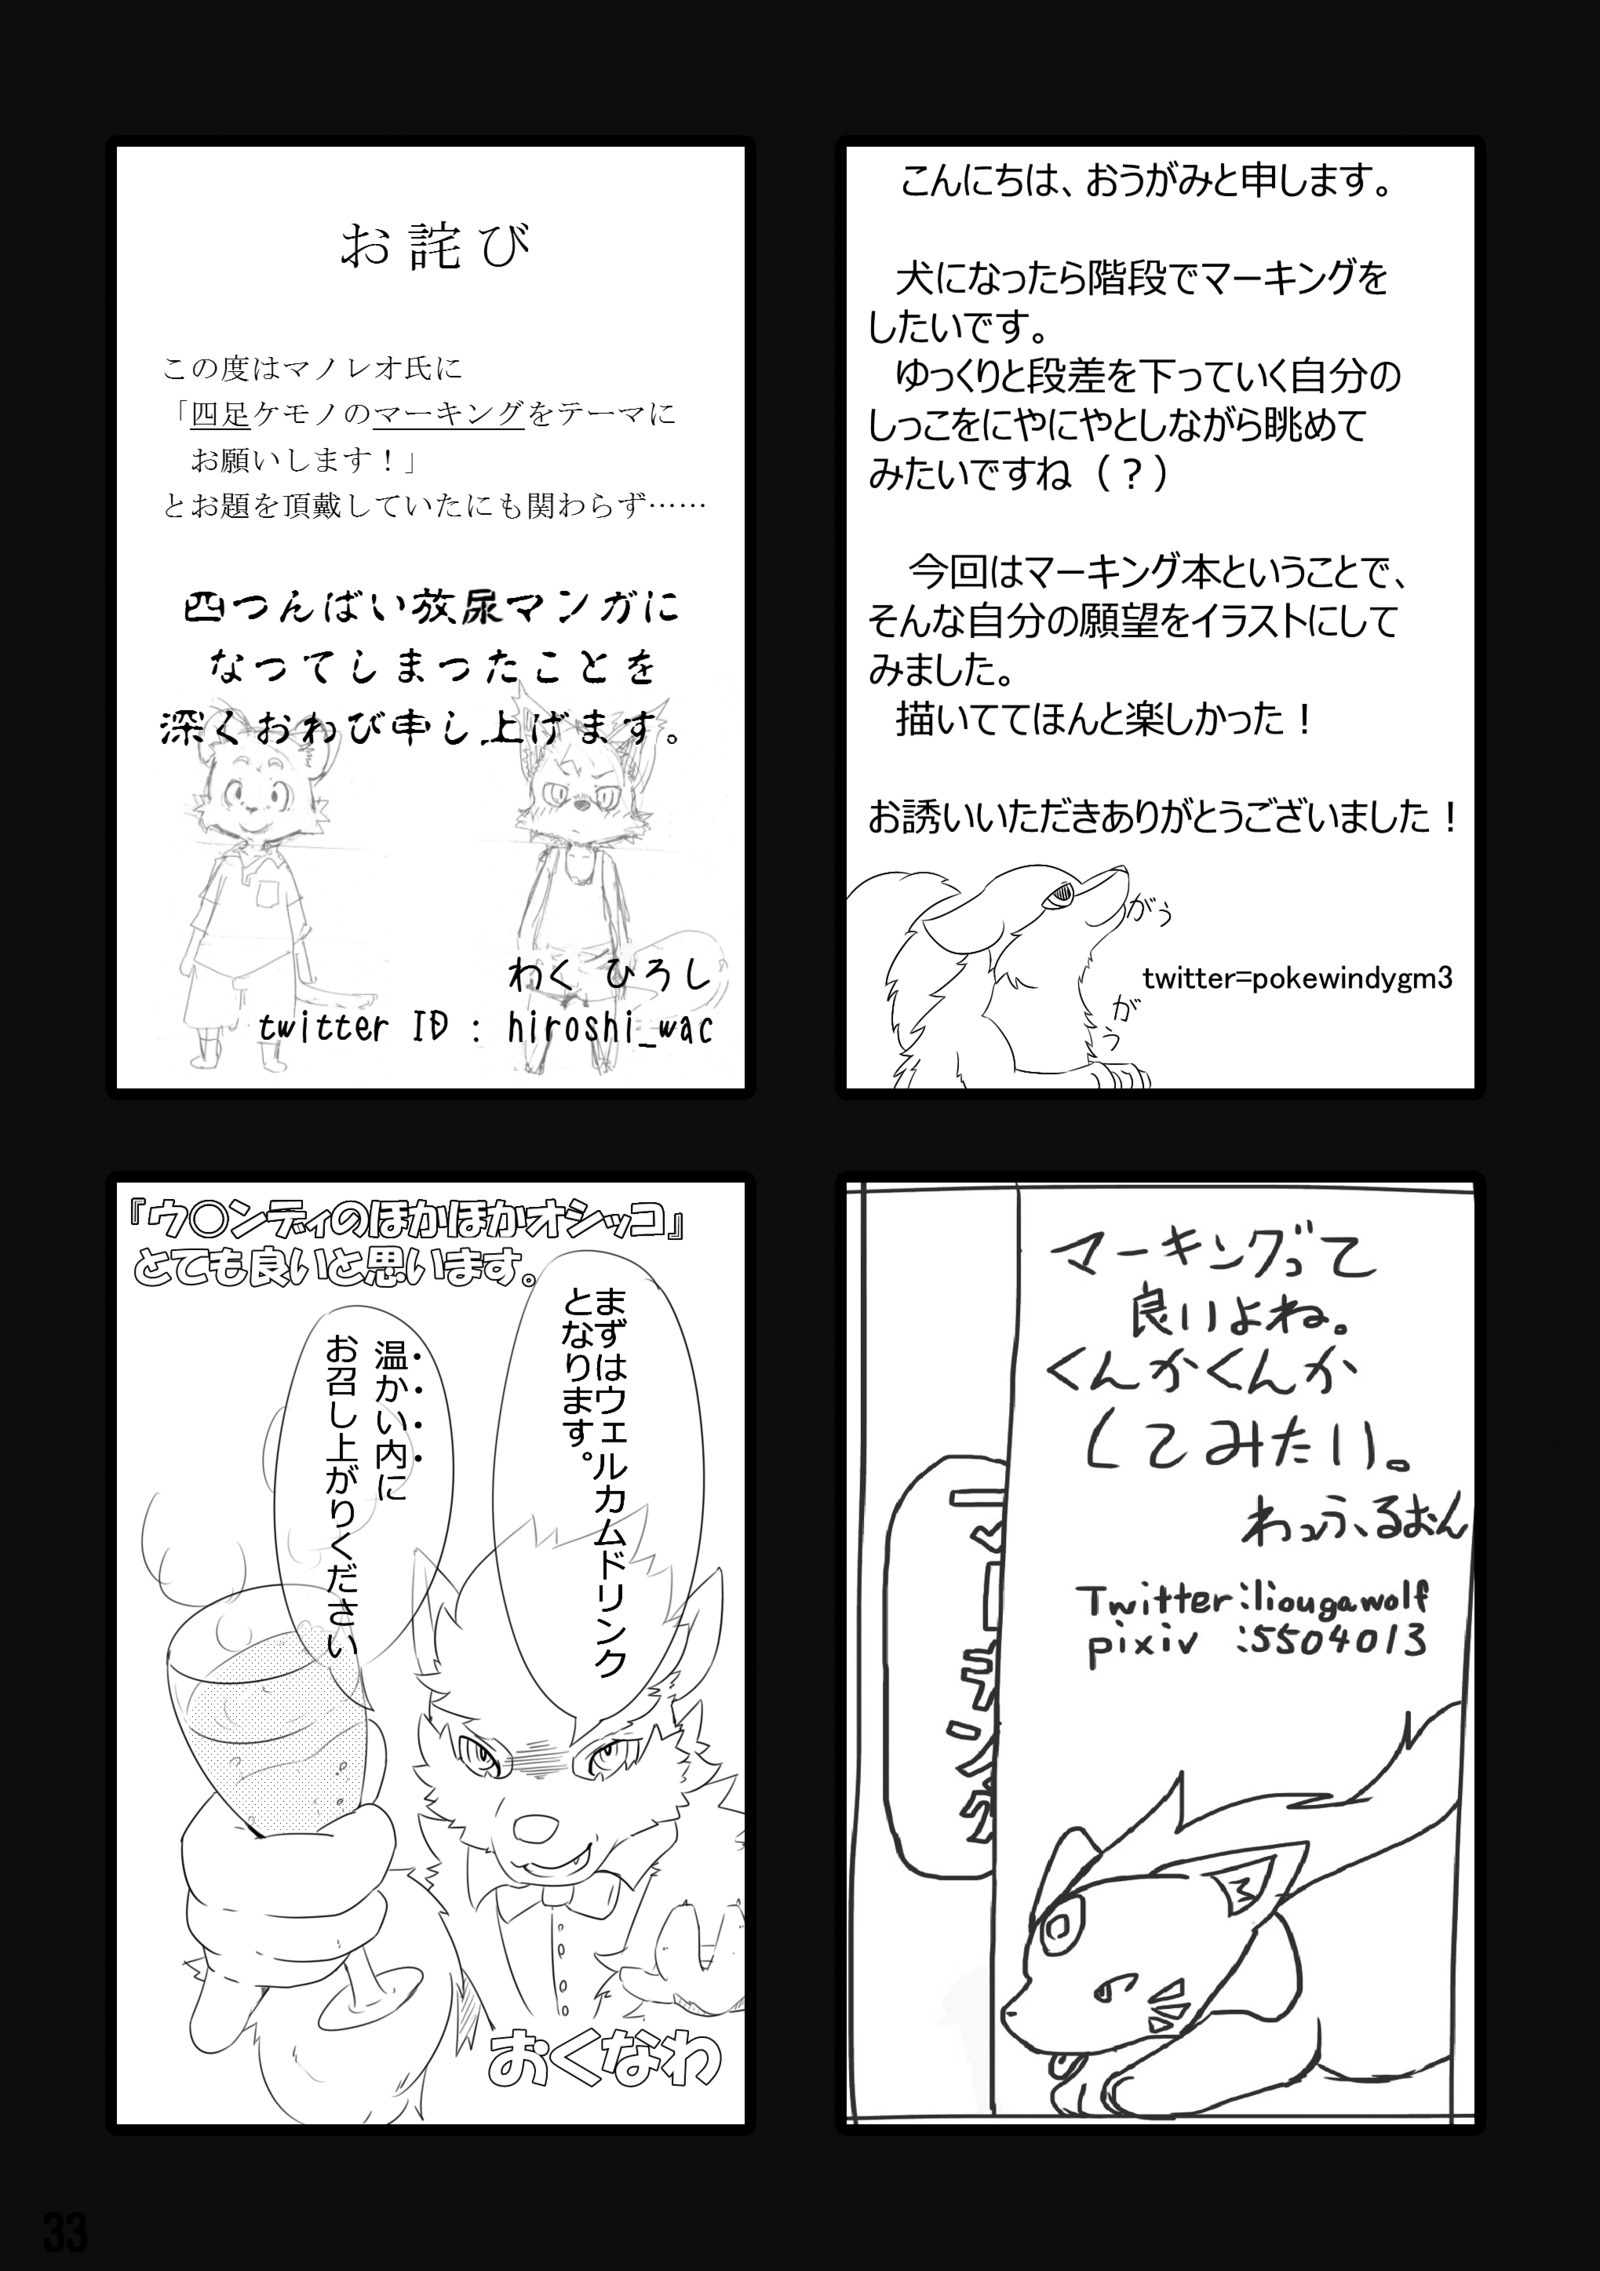 こんにちは、おうがみと申します。
犬になったら階段でマーキングを
したいです。
ゆっくりと段差を下っていく自分の
しっこをにやにやとしながら眺めて
みたいですね（？）
今回はマーキング本ということで、
そんな自分の願望をイラストにして
みました。
描いててほんと楽しかった！
お誘いいただきありがとうございました！
がぅ
がぅ
twitter=pokewindygm3
お詫び
この度はマノレオ氏に
「四足ケモノのマーキングをテーマに
お願いします！」
とお題を頂戴していたにも関わらず……
四つんばい放尿マンガに
なってしまったことを
深くおわび申し上げます。
わく ひろし
twitter ID : hiroshi_wac
マーキングって
良いよね。
くんかくんか
してみたい。
わっふるおん
Twitter:liougawolf
pixiv :5504013
マーキング
『ウ○ンディのほかほかオシッコ』
とても良いと思います。
まずはウェルカムドリンク
となります。
温かい内に
お召し上がりください
おくなわ
33